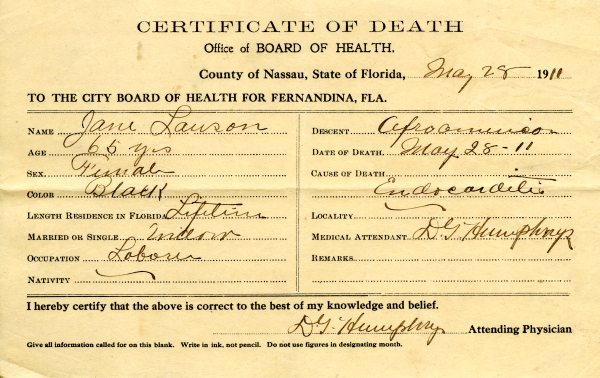 CERTIFICATE OF DEATH
Office of BOARD OF HEALTH.
County of Nassau, State of Florida, May 28 1911
TO THE CITY BOARD OF HEALTH FOR FERNANDINA, FLA.
NAME Jane Lawson
AGE 65 yrs
SEX. Female
COLOR Black
LENGTH RESIDENCE IN FLORIDA Lifetime
MARRIED OR SINGLE. Widow
OCCUPATION Laborer
NATIVITY
DESCENT Afroamerican
DATE OF DEATH. May 28-11
CAUSE OF DEATH
Endocarditis
LOCALITY
MEDICAL ATTENDANT D.G. Humphreys
REMARKS
I hereby certify that the above is correct to the best of my knowledge and belief.
D.G. Humphreys Attending Physician
Give all information called for on this blank. Write in ink, not pencil. Do not use figures in designating month.